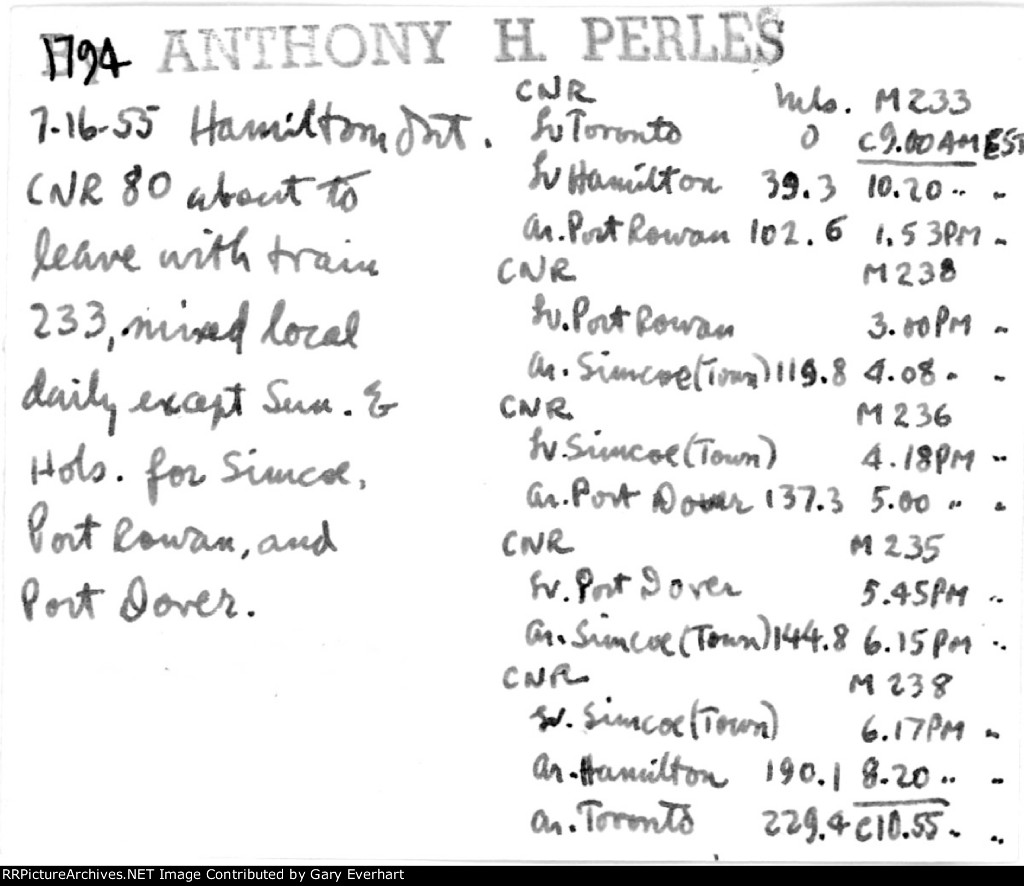 1794 ANTHONY H. PERLES
7-16-55 Hamilton, Ont.
CNR 80 about to
leave with train
233, mixed local
daily except Sun. &
Hols. for Simcoe,
Port Rowan, and
Port Dover.
CNR Mls. M233
Lv Toronto 0 C9.00AM EST
Lv Hamilton 39.3 10.20 " "
Ar. Port Rowan 102.6 1.53PM "
CNR M238
Lv. Port Rowan 3.00PM "
Ar. Simcoe (Town) 119.8 4.08 " "
CNR M236
Lv. Simcoe (Town) 4.18PM "
Ar. Port Dover 137.3 5.00 " "
CNR M235
Lv. Port Dover 5.45PM "
Ar. Simcoe (Town) 144.8 6.15PM "
CNR M238
Lv. Simcoe (Town) 6.17PM "
Ar. Hamilton 190.1 8.20 " "
Ar. Toronto 229.4 C10.55 " "
RRPictureArchives.NET Image Contributed by Gary Everhart